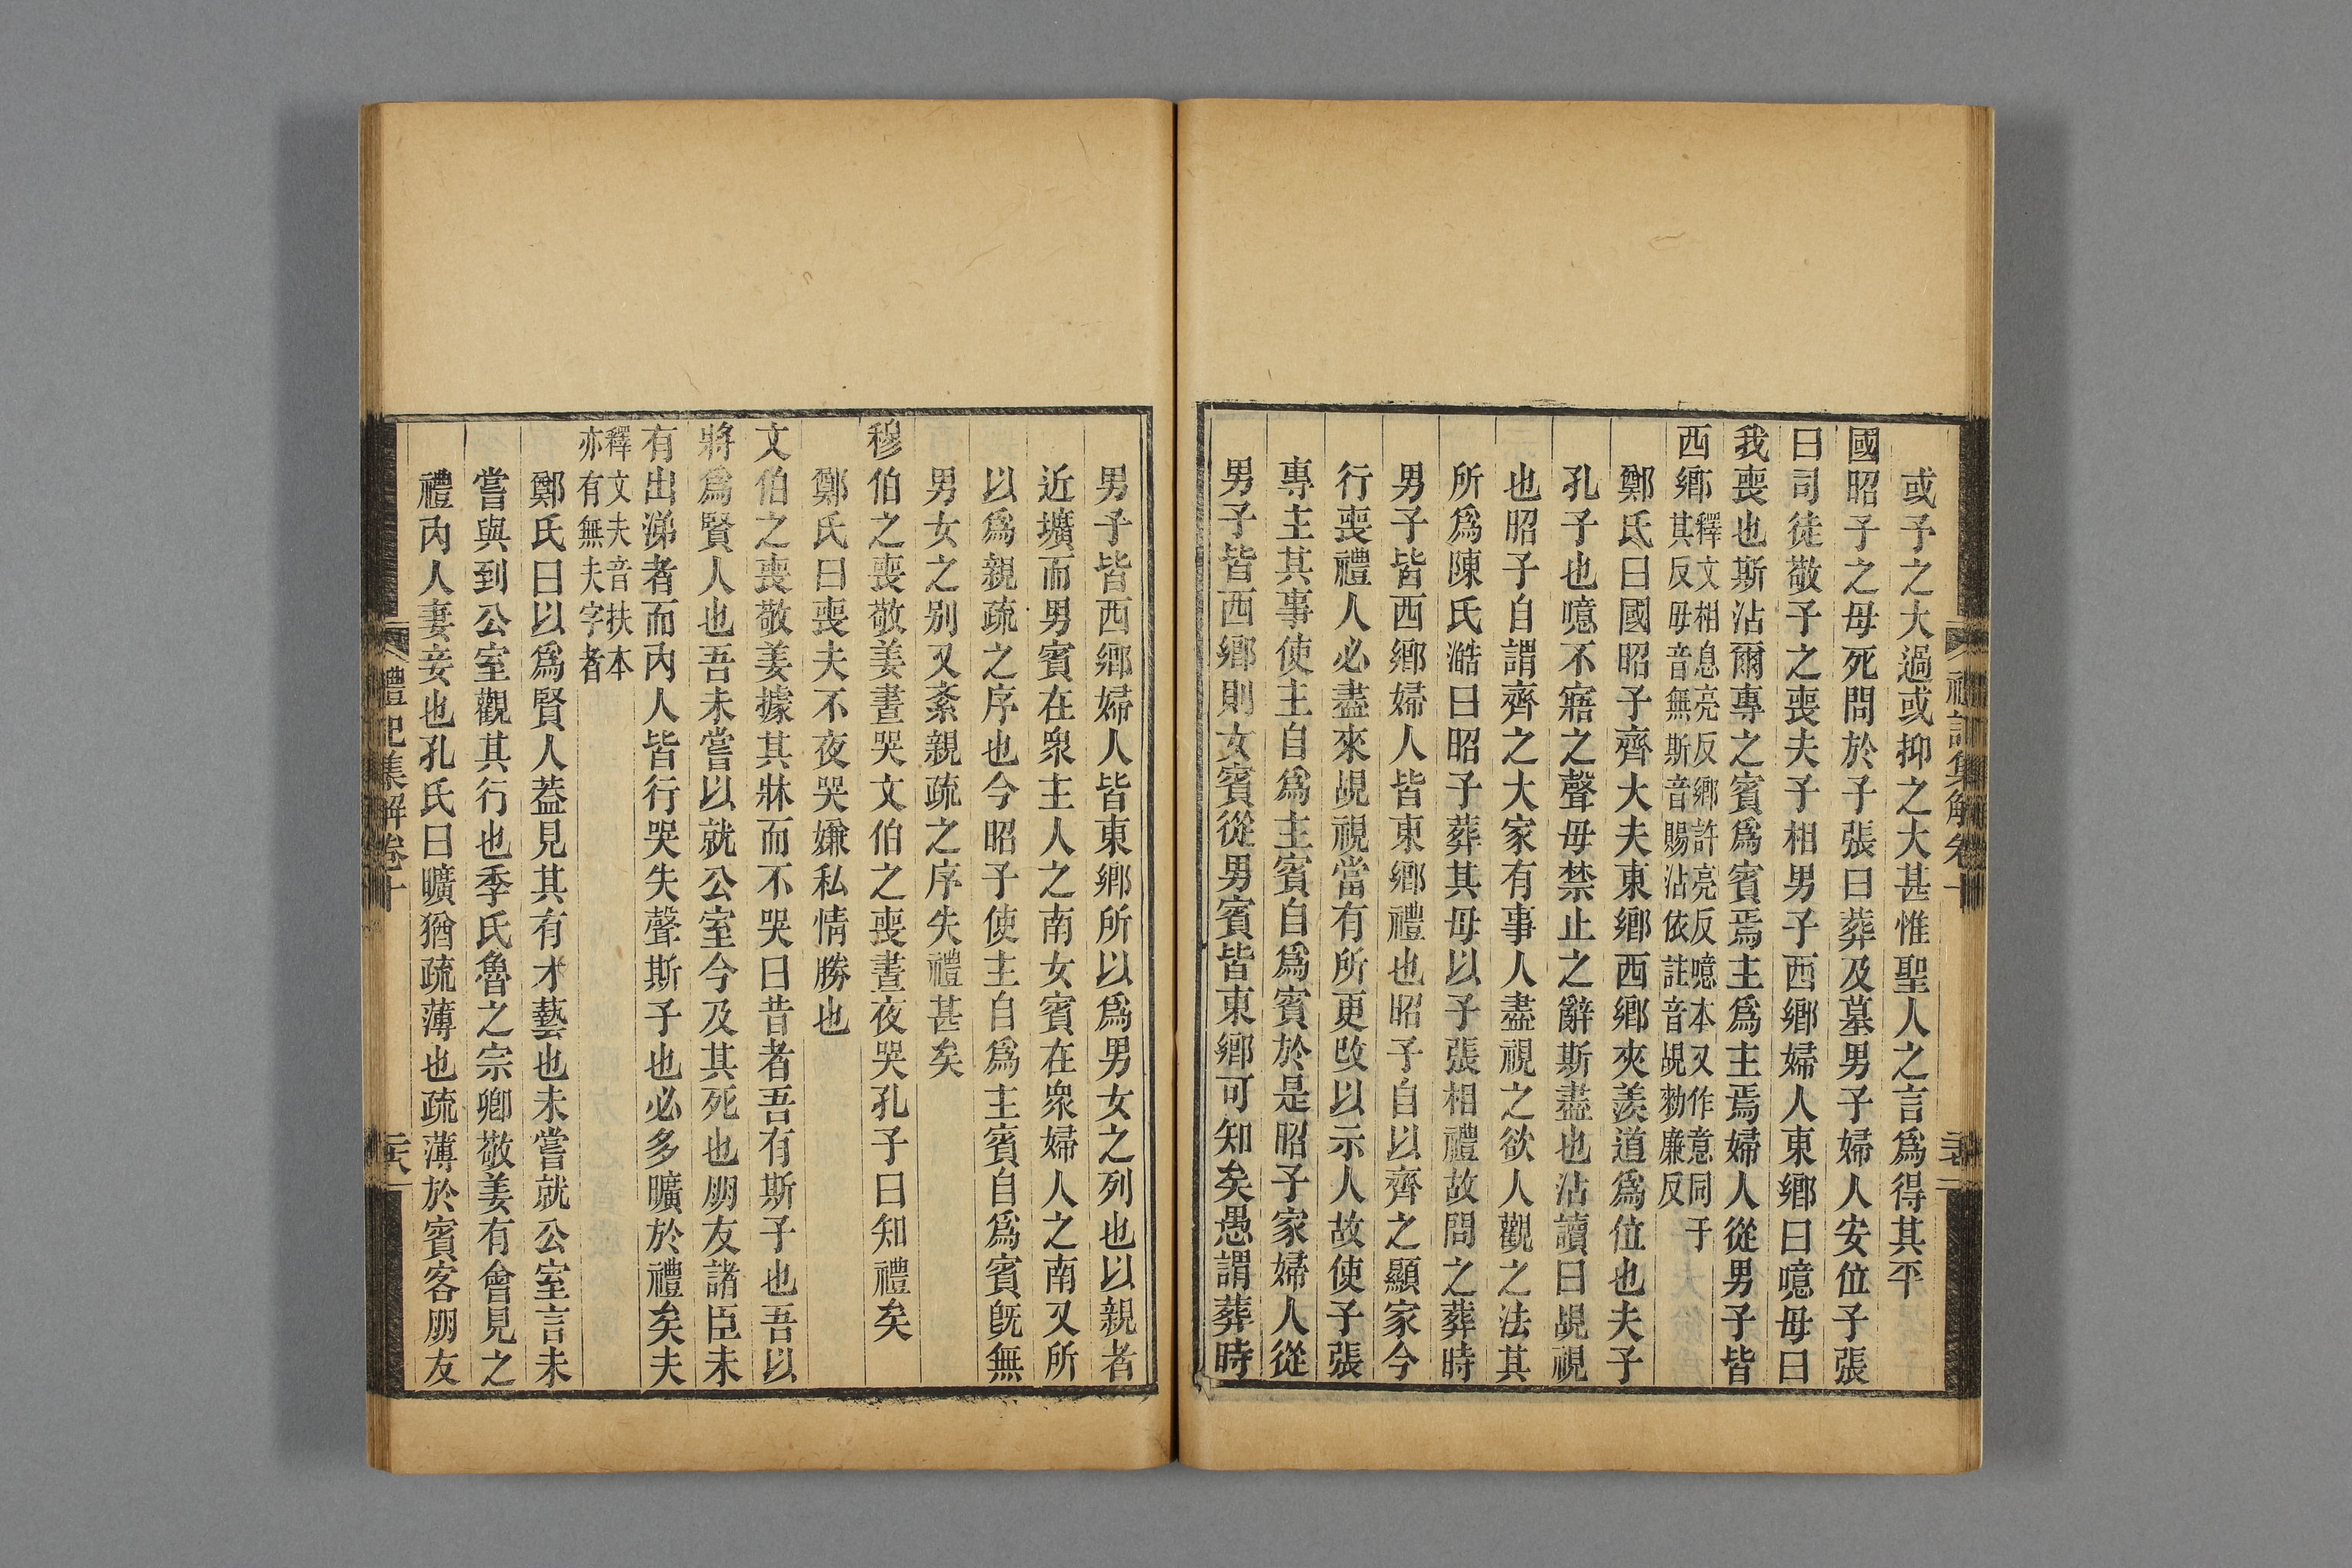 或予之大過或抑之大甚惟聖人之言爲得其平
國昭子之母死問於子張曰葬及墓男子婦人安位子張
曰司徒敬子之喪夫子相男子西鄉婦人東鄉曰噫毋曰
我喪也斯沾爾專之賓爲賓焉主爲主焉婦人從男子皆
西鄉釋文相息亮反鄉許亮反噫本又作意同于
其反毋音無斯音賜沾依註音覘勑廉反
鄭氏曰國昭子齊大夫東鄉西鄉夾羨道爲位也夫子
孔子也噫不寤之聲毋禁止之辭斯盡也沾讀曰覘覘
也昭子自謂齊之大家有事人盡視之欲人觀之法其
所爲陳氏澔曰昭子葬其母以子張相禮故問之葬時
男子皆西鄉婦人皆東鄉禮也昭子自以齊之顯家今
行喪禮人必盡來覘視當有所更改以示人故使子張
專主其事使主自爲主賓自爲賓於是昭子家婦人從
男子皆西鄉則女賓從男賓皆東鄉可知矣愚謂葬時
男子皆西鄉婦人皆東鄉所以爲男女之列也以親者
近壙而男賓在衆主人之南女賓在衆婦人之南又所
以爲親疏之序也今昭子使主自爲主賓自爲賓旣無
男女之别又紊親疏之序失禮甚矣
穆伯之喪敬姜晝哭文伯之喪晝夜哭孔子曰知禮矣
鄭氏曰喪夫不夜哭嫌私情勝也
文伯之喪敬姜據其牀而不哭曰昔者吾有斯子也吾以
將爲賢人也吾未嘗以就公室今及其死也朋友諸臣未
有出涕者而内人皆行哭失聲斯子也必多曠於禮矣夫
釋文夫音扶本
亦有無夫字者
鄭氏曰以爲賢人葢見其有才藝也未嘗就公室言未
嘗與到公室觀其行也季氏魯之宗卿敬姜有會見之
禮内人妻妾也孔氏曰曠猶疏薄也疏薄於賓客朋友
禮記集解卷十